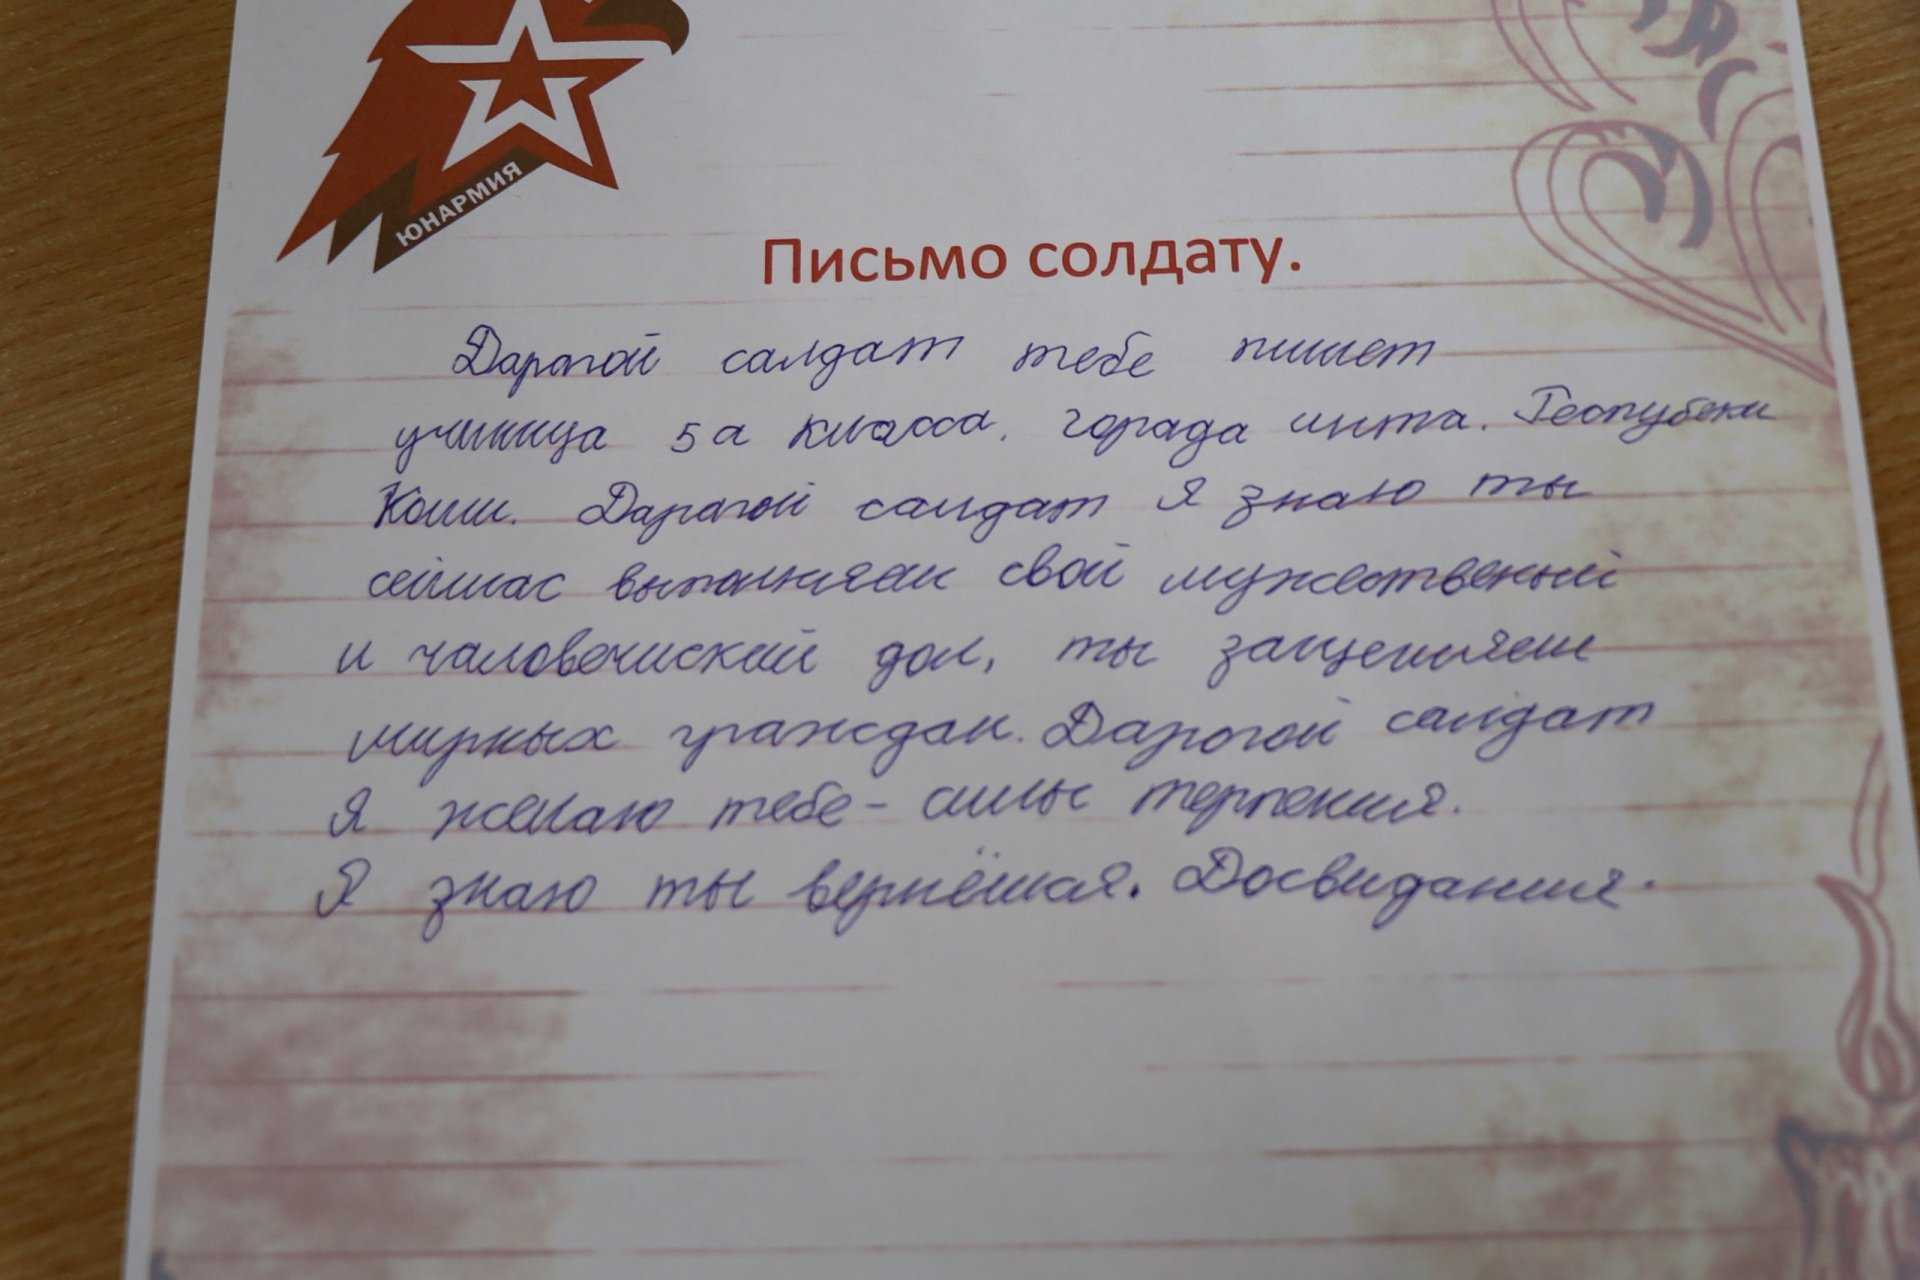 ЮНАРМИЯ
Письмо солдату.
Дарогой салдат тебе пишет
ученица 5 а класса, горада инта. Респубеки
Коми. Дарагой салдат я знаю ты
сейчас выполняеш свой мужественый
и чаловечиский дол, ты защеняеш
мирных граждан. Дарогой салдат
я желаю тебе - силы терпения.
Я знаю ты вернёшся. Досвидания.